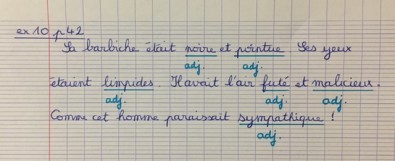 ex 10 p 42
Sa barbiche était noire et pointue Ses yeux
adj. adj.
étaient limpides. Il avait l'air futé et malicieux.
adj. adj. adj.
Comme cet homme paraissait sympathique !
adj.